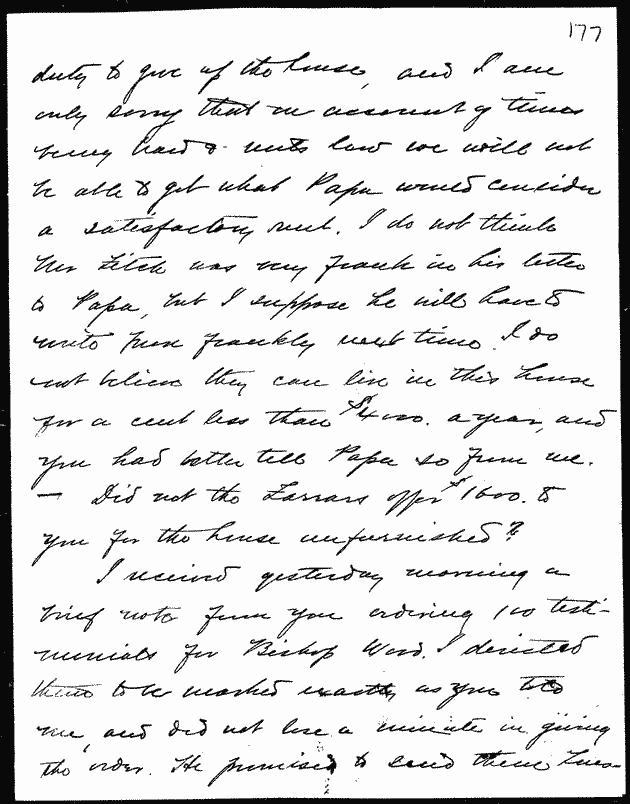 177
duty to give up the house, and I am
only sorry that on account of times
being hard & rents low we will not
be able to get what Papa would consider
a satisfactory rent. I do not think
Mr Fitch was very frank in his letter
to Papa, but I suppose he will have to
write more frankly next time. I do
not believe they can live in this house
for a cent less than $4000. a year, and
you had better tell Papa so from me.
— Did not the Farrars offer $1600. to
you for the house unfurnished?
I received yesterday morning a
brief note from you ordering 100 testi-
monials for Bishop Wood. I directed
them to be marked exactly as you told
me, and did not lose a minute in giving
the order. He promised to send them Tues-